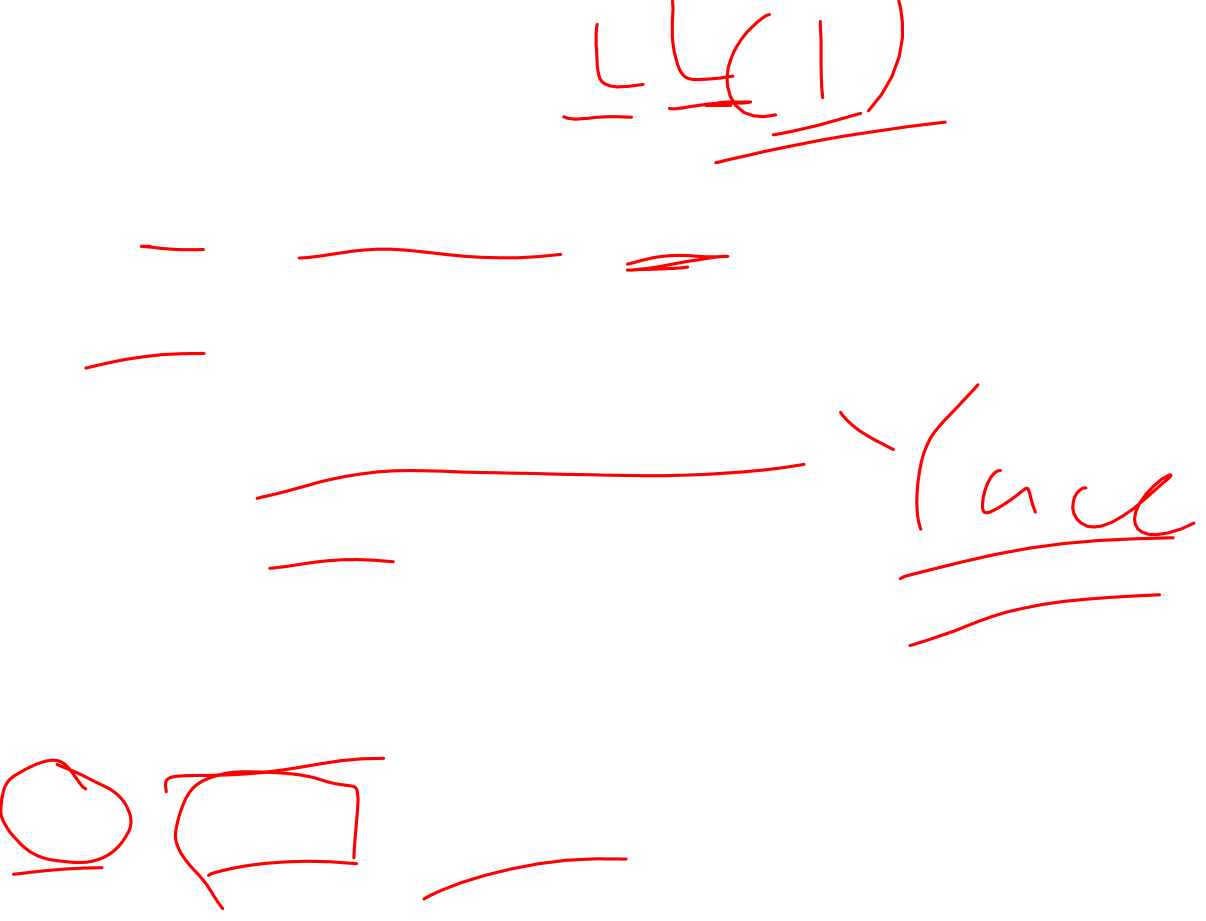 LL(1)
Yacc